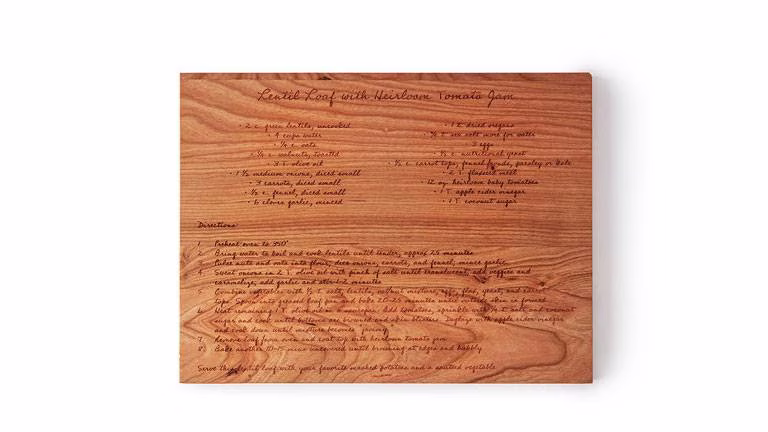 Lentil Loaf with Heirloom Tomato Jam
• 2 c. green lentils, uncooked
• 4 cups water
• ¾ c. oats
• ¼ c. walnuts, toasted
• 3 T. olive oil
• 1 ½ medium onions, diced small
• 3 carrots, diced small
• ½ c. fennel, diced small
• 6 cloves garlic, minced
• 1 T. dried oregano
sea salt more for water
• 3 eggs
c. nutritional yeast
• ½ c. carrot tops, fennel fronds, parsley or kale
• 2 T. flaxseed meal
• 12 oz. heirloom baby tomatoes
• 1 T. apple cider vinegar
• 1 T. coconut sugar
Directions
1. Preheat oven to 350°
2. Bring water to boil and cook lentils until tender, approx 25 minutes
3. Pulse nuts and oats into flour, dice onions, carrots, and fennel; mince garlic
4. Sweat onions in 2 T. olive oil with pinch of salt until translucent, add veggies and
caramelize, add garlic and stir 1-2 minutes
Combine vegetables with ½ t. salt, lentils, walnut mixture, egg, flax, yeast, and carrot
tops. Spoon into greased loaf pan and bake 20-25 minutes until outside skin is formed
6. Heat remaining 1 T. olive oil in a saucepan. Add tomatoes, sprinkle with ¼ t. salt and coconut
sugar and cook until bottoms are browned and skin blisters. Deglaze with apple cider vinegar
and cook down until mixture becomes jammy
7. Remove loaf from oven and coat top with heirloom tomato jam
8. Bake another 10-15 mins uncovered until browning at edges and bubbly
Serve this lentil loaf with your favorite mashed potatoes and a sautéed vegetable